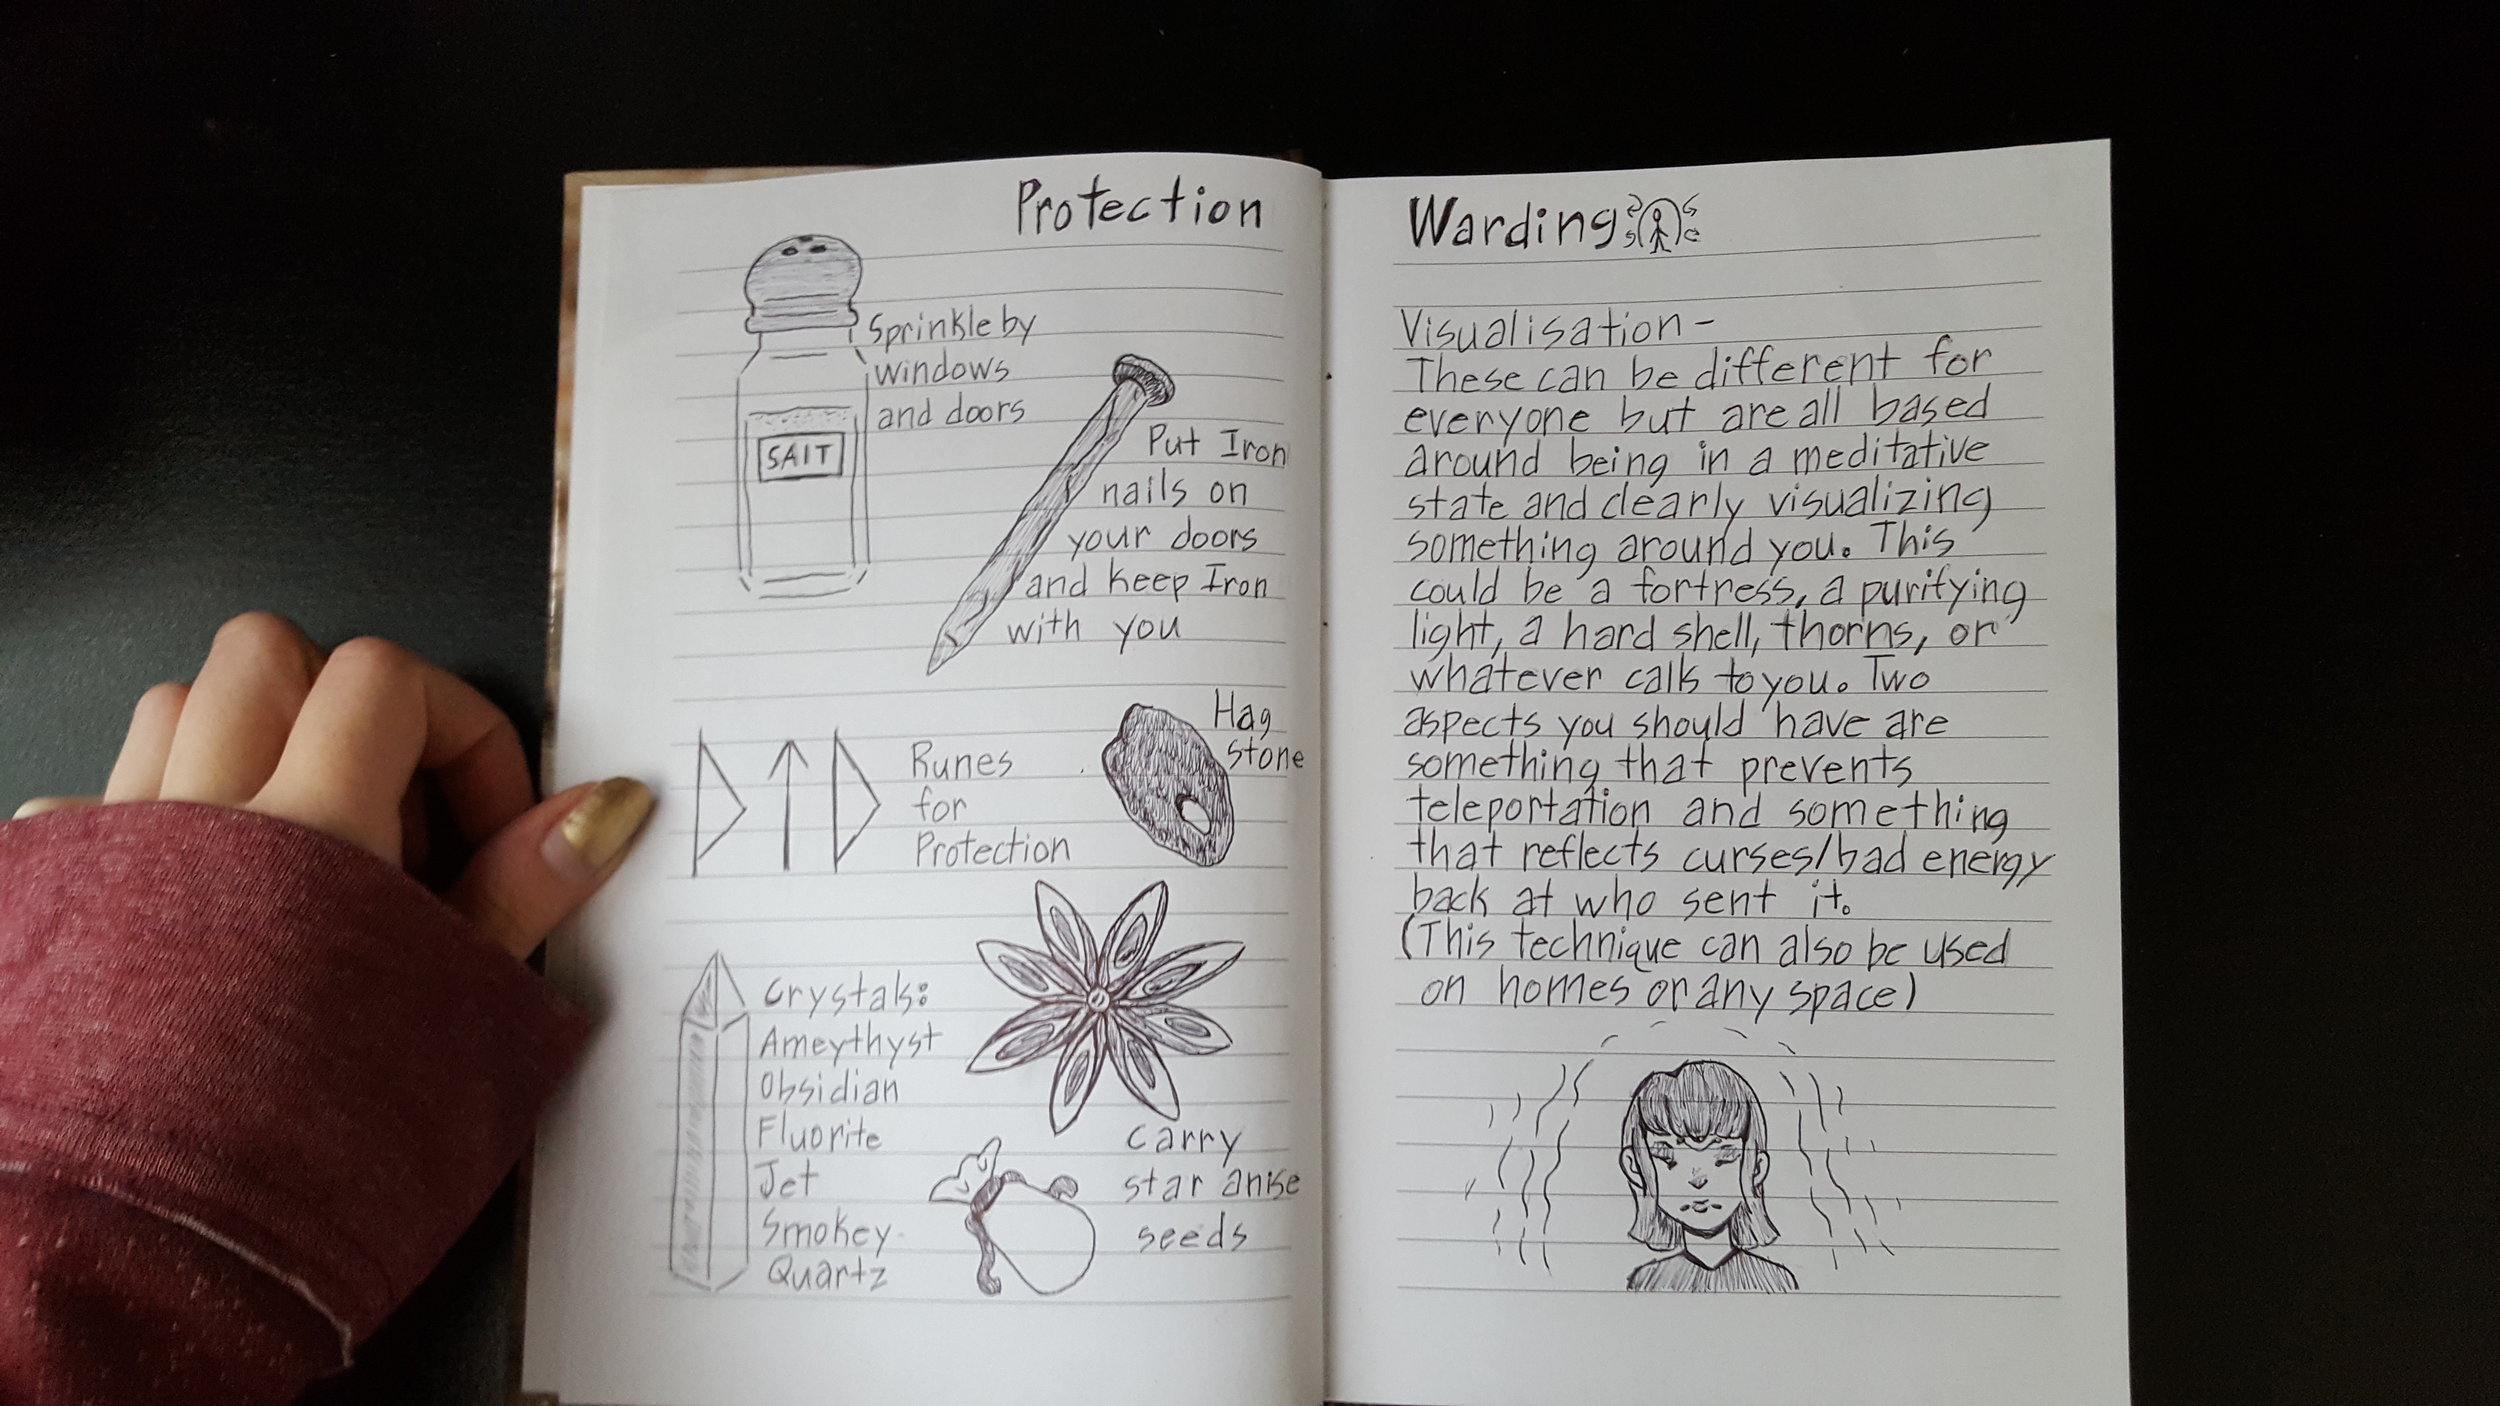 Protection
Sprinkle by
windows
and doors
SAlT
Put Iron
nails on
your doors
and keep Iron
with you
Hag
stone
Runes
for
Protection
Crystals:
Ameythyst
Obsidian
Fluorite
Jet
Smokey
Quartz
Carry
star anise
seeds
Warding
Visualisation-
These can be different for
everyone but are all based
around being in a meditative
state and clearly visualizing
something around you. This
could be a fortress, a purifying
light, a hard shell, thorns, or
whatever calls to you. Two
aspects you should have are
something that prevents
teleportation and something
that reflects curses/bad energy
back at who sent it.
(This technique can also be used
on homes or any space)